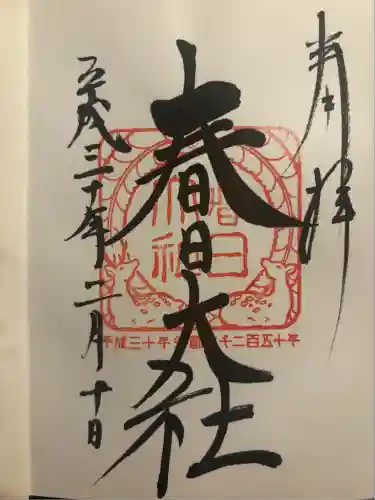 奉拝
春日大社
平成三十年二月十日
春日
社
平成三十年
千二百五十年